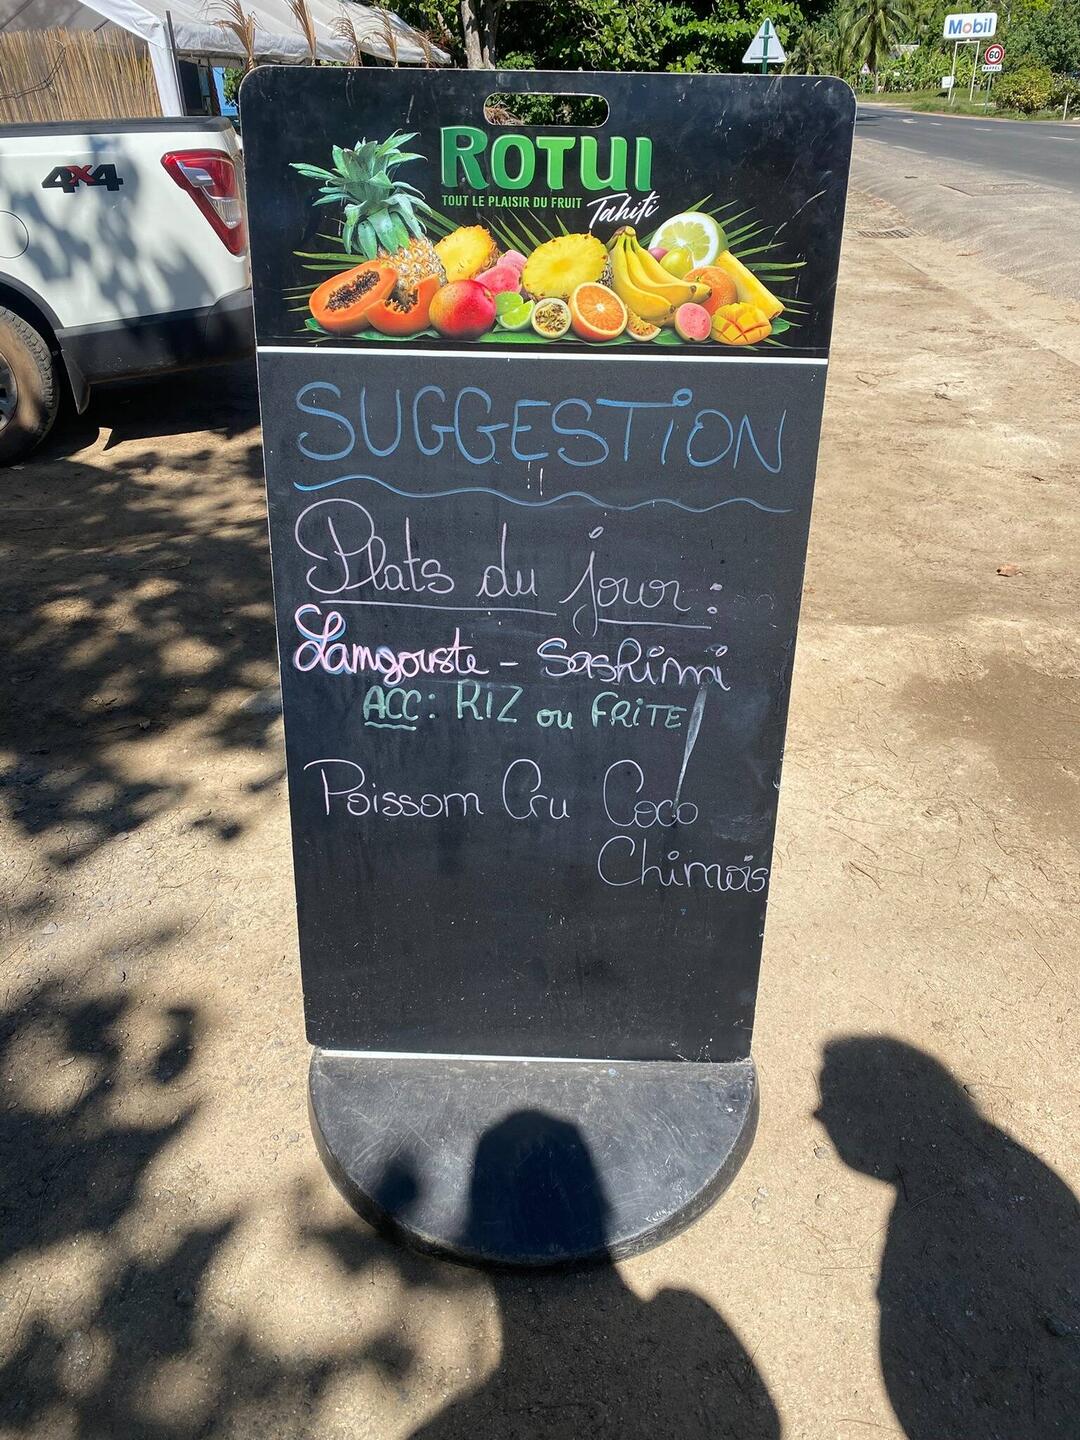 Mobil
60
RAPPEL
4x4
ROTUI
TOUT LE PLAISIR DU FRUIT
Tahiti
SUGGESTION
Plats du jour :
Langouste - Sashimi
ACC : RIZ ou FRITE
Poisson Cru Coco
Chinois